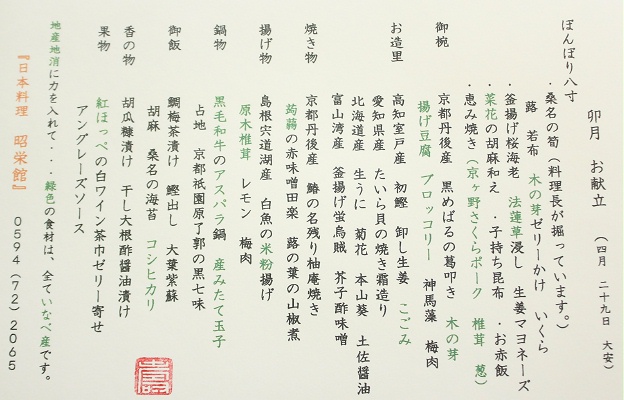 卯月　お献立　（四月　二十九日　大安）
ぼんぼり八寸
・桑名の筍（料理長が掘っています。）
蕗　若布　木の芽ゼリーかけ　いくら
・釜揚げ桜海老　法蓮草浸し　生姜マヨネーズ
・菜花の胡麻和え　・子持ち昆布　・お赤飯
・恵み焼き（京ヶ野さくらポーク　椎茸　葱）
御椀　京都丹後産　黒めばるの葛叩き　木の芽
揚げ豆腐　ブロッコリー　神馬藻　梅肉
お造里　高知室戸産　初鰹　卸し生姜　こごみ
愛知県産　たいら貝の焼き霜造り
北海道産　生うに　菊花　本山葵　土佐醤油
富山湾産　釜揚げ蛍烏賊　芥子酢味噌
焼き物　京都丹後産　鰆の名残り柚庵焼き
蒟蒻の赤味噌田楽　蕗の葉の山椒煮
揚げ物　島根宍道湖産　白魚の米粉揚げ
原木椎茸　レモン　梅肉
鍋物　黒毛和牛のアスパラ鍋　産みたて玉子
占地　京都祇園原了郭の黒七味
御飯　鯛梅茶漬け　鰹出し　大葉紫蘇
胡麻　桑名の海苔　コシヒカリ
香の物　胡瓜糠漬け　干し大根酢醤油漬け
果物　紅ほっぺの白ワイン茶巾ゼリー寄せ
アングレーズソース
地産地消に力を入れて・・・緑色の食材は、全ていなべ産です。
『日本料理　昭栄館』　0594（72）2065
寿